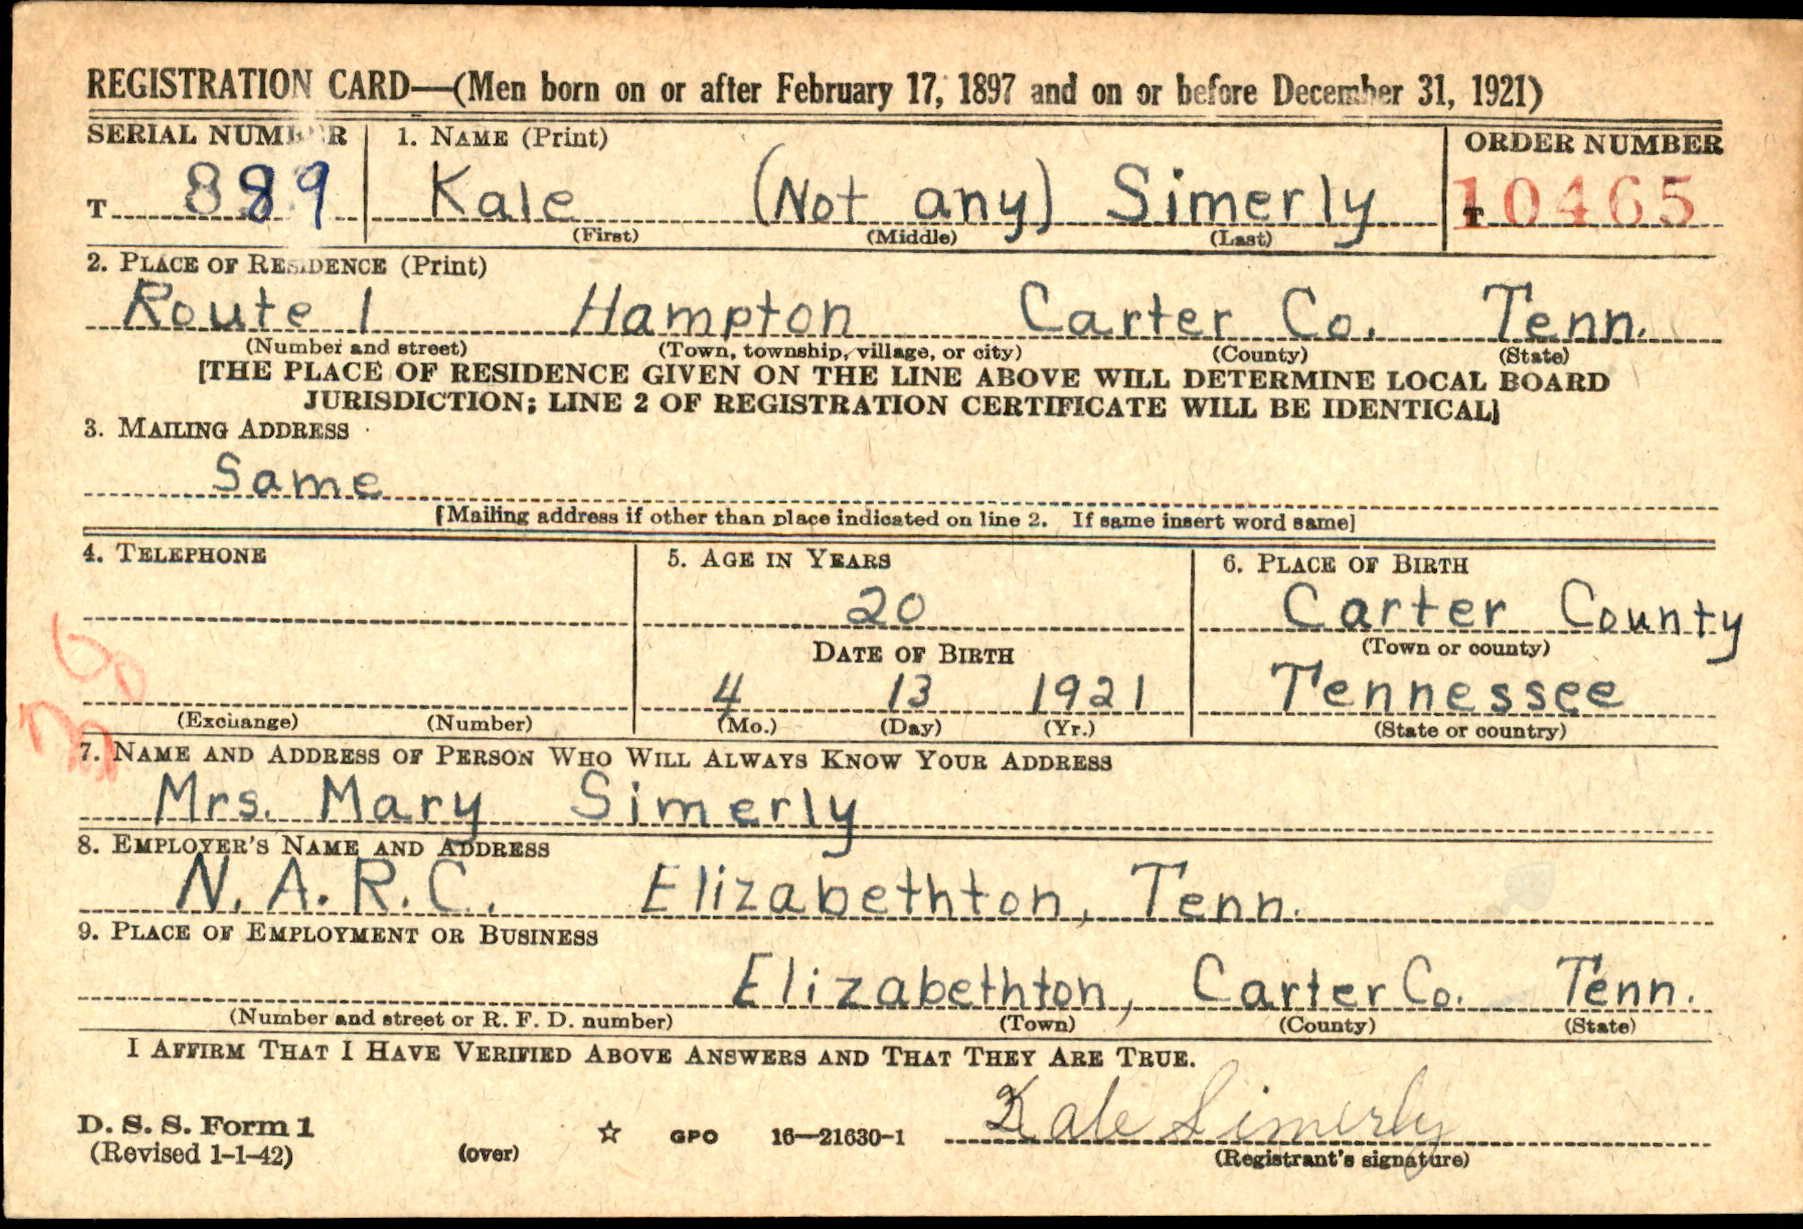 REGISTRATION CARD—(Men born on or after February 17, 1897 and on or before December 31, 1921)
SERIAL NUMBER 1. NAME (Print) ORDER NUMBER
T 889 Kale (Not any) Simerly T 10465
(First) (Middle) (Last)
2. PLACE OF RESIDENCE (Print)
Route 1 Hampton Carter Co. Tenn.
(Number and street) (Town, township, village, or city) (County) (State)
[THE PLACE OF RESIDENCE GIVEN ON THE LINE ABOVE WILL DETERMINE LOCAL BOARD
JURISDICTION; LINE 2 OF REGISTRATION CERTIFICATE WILL BE IDENTICAL]
3. MAILING ADDRESS
Same
[Mailing address if other than place indicated on line 2. If same insert word same]
4. TELEPHONE 5. AGE IN YEARS 6. PLACE OF BIRTH
20 Carter County
DATE OF BIRTH (Town or county)
4 13 1921 Tennessee
(Exchange) (Number) (Mo.) (Day) (Yr.) (State or country)
7. NAME AND ADDRESS OF PERSON WHO WILL ALWAYS KNOW YOUR ADDRESS
Mrs. Mary Simerly
8. EMPLOYER'S NAME AND ADDRESS
N. A. R. C. Elizabethton, Tenn.
9. PLACE OF EMPLOYMENT OR BUSINESS
Elizabethton, Carter Co. Tenn.
(Number and street or R. F. D. number) (Town) (County) (State)
I AFFIRM THAT I HAVE VERIFIED ABOVE ANSWERS AND THAT THEY ARE TRUE.
Kale Simerly
D. S. S. Form 1
(Revised 1-1-42) (over) ☆ GPO 16—21630-1 (Registrant's signature)